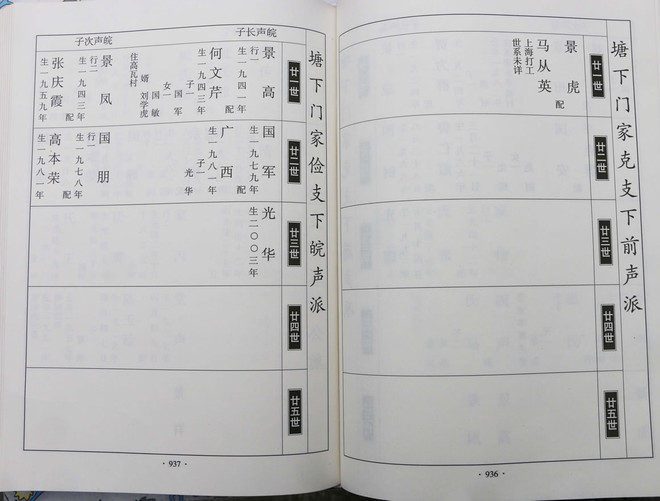 塘下门家克支下前声派
廿一世
景虎
配
马从英
上海打工
世系未详
廿二世
廿三世
廿四世
廿五世
·936·
塘下门家俭支下皖声派
廿一世
皖声长子
景高
行一
生一九四一年
配
何文芹
生一九四三年
子一
国军
女一
国敏
婿
刘学虎
住高瓦村
皖声次子
景凤
行二
生一九四三年
配
张庆霞
生一九五九年
廿二世
国军
生一九七九年
配
广西
生一九八一年
子一
光华
国朋
行一
生一九七八年
配
高本荣
生一九八一年
廿三世
光华
生二〇〇三年
廿四世
廿五世
·937·